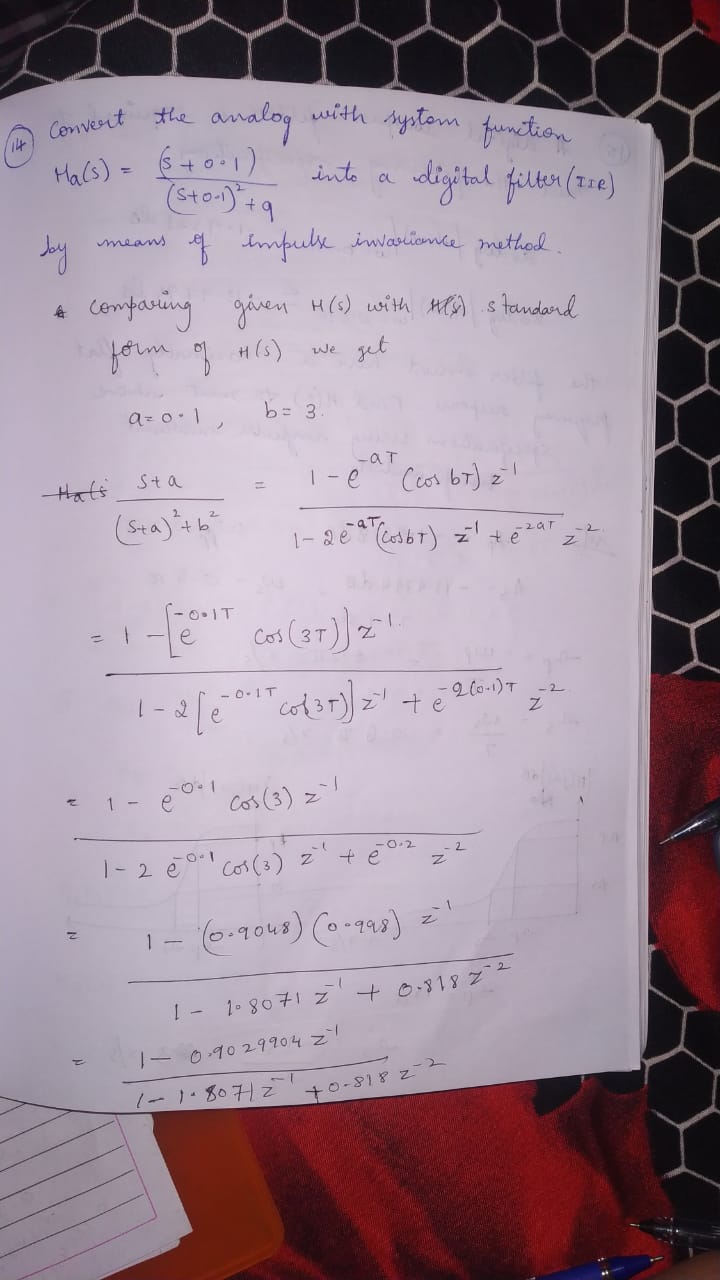 14 Convert the analog with system function
Ha(s) = (s + 0.1) / (s+0.1)² + 9 into a digital filter (IIR)
by means of impulse invariance method.
comparing given H(s) with H(s) standard
form of H(s) we get
a = 0.1, b = 3.
Ha(s (s+a) / (s+a)² + b² = 1 - e^-aT (cos bT) z^-1 / 1 - 2e^-aT (cos bT) z^-1 + e^-2aT z^-2.
= 1 - [e^-0.1T cos(3T)] z^-1. / 1 - 2[e^-0.1T cos(3T)] z^-1 + e^-2(0.1)T z^-2
= 1 - e^-0.1 cos(3) z^-1 / 1 - 2 e^-0.1 cos(3) z^-1 + e^-0.2 z^-2
= 1 - (0.9048) (0.998) z^-1 / 1 - 1.8071 z^-1 + 0.818 z^-2
= 1 - 0.9029904 z^-1 / 1 - 1.8071 z^-1 + 0.818 z^-2